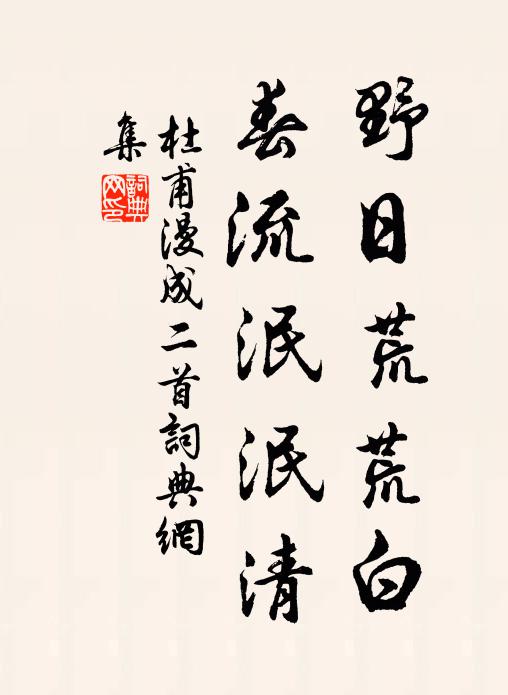 野日荒荒白
春流泯泯清
杜甫漫成二首詞典網
集
詞典網印